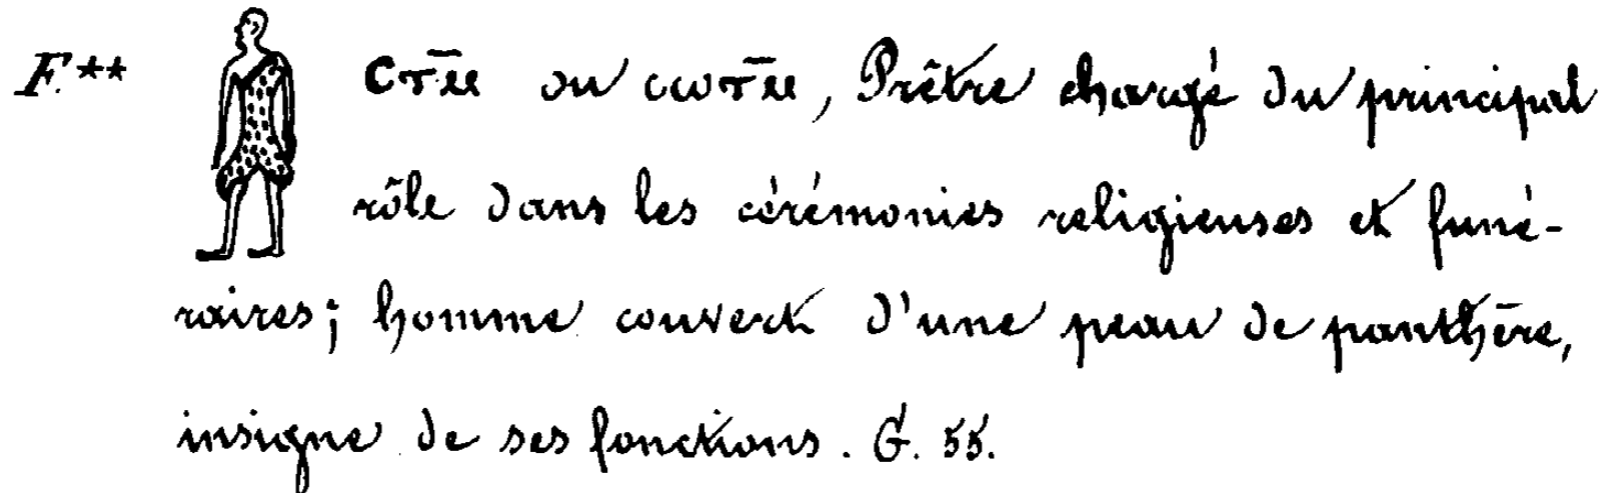 F.** ⲥⲧⲙ̅ ou ⲥⲱⲧⲙ̅, Prêtre chargé du principal
rôle dans les cérémonies religieuses et funé-
raires; homme couvert d'une peau de panthère,
insigne de ses fonctions. G. 55.